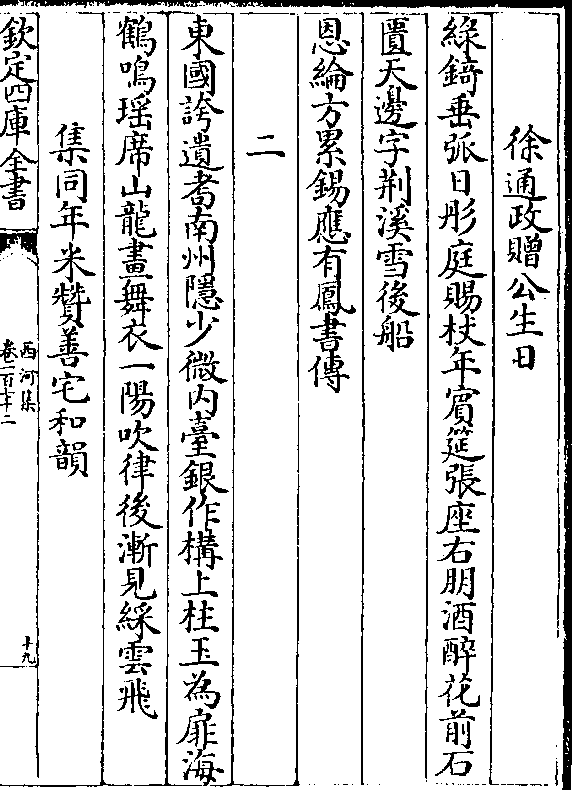 徐通政贈公生日
綠錡垂弧日彤庭賜杖年賓筵張座右朋酒醉花前石
匱天邊字荆溪雪後船
恩綸方累錫應有鳳書傳
二
東國誇遺耉南州隱少微内臺銀作構上柱玉為扉海
鶴鳴瑶席山龍畫舞衣一陽吹律後漸見綵雲飛
集同年米贊善宅和韻
欽定四庫全書
西河集
卷一百七十二
十九